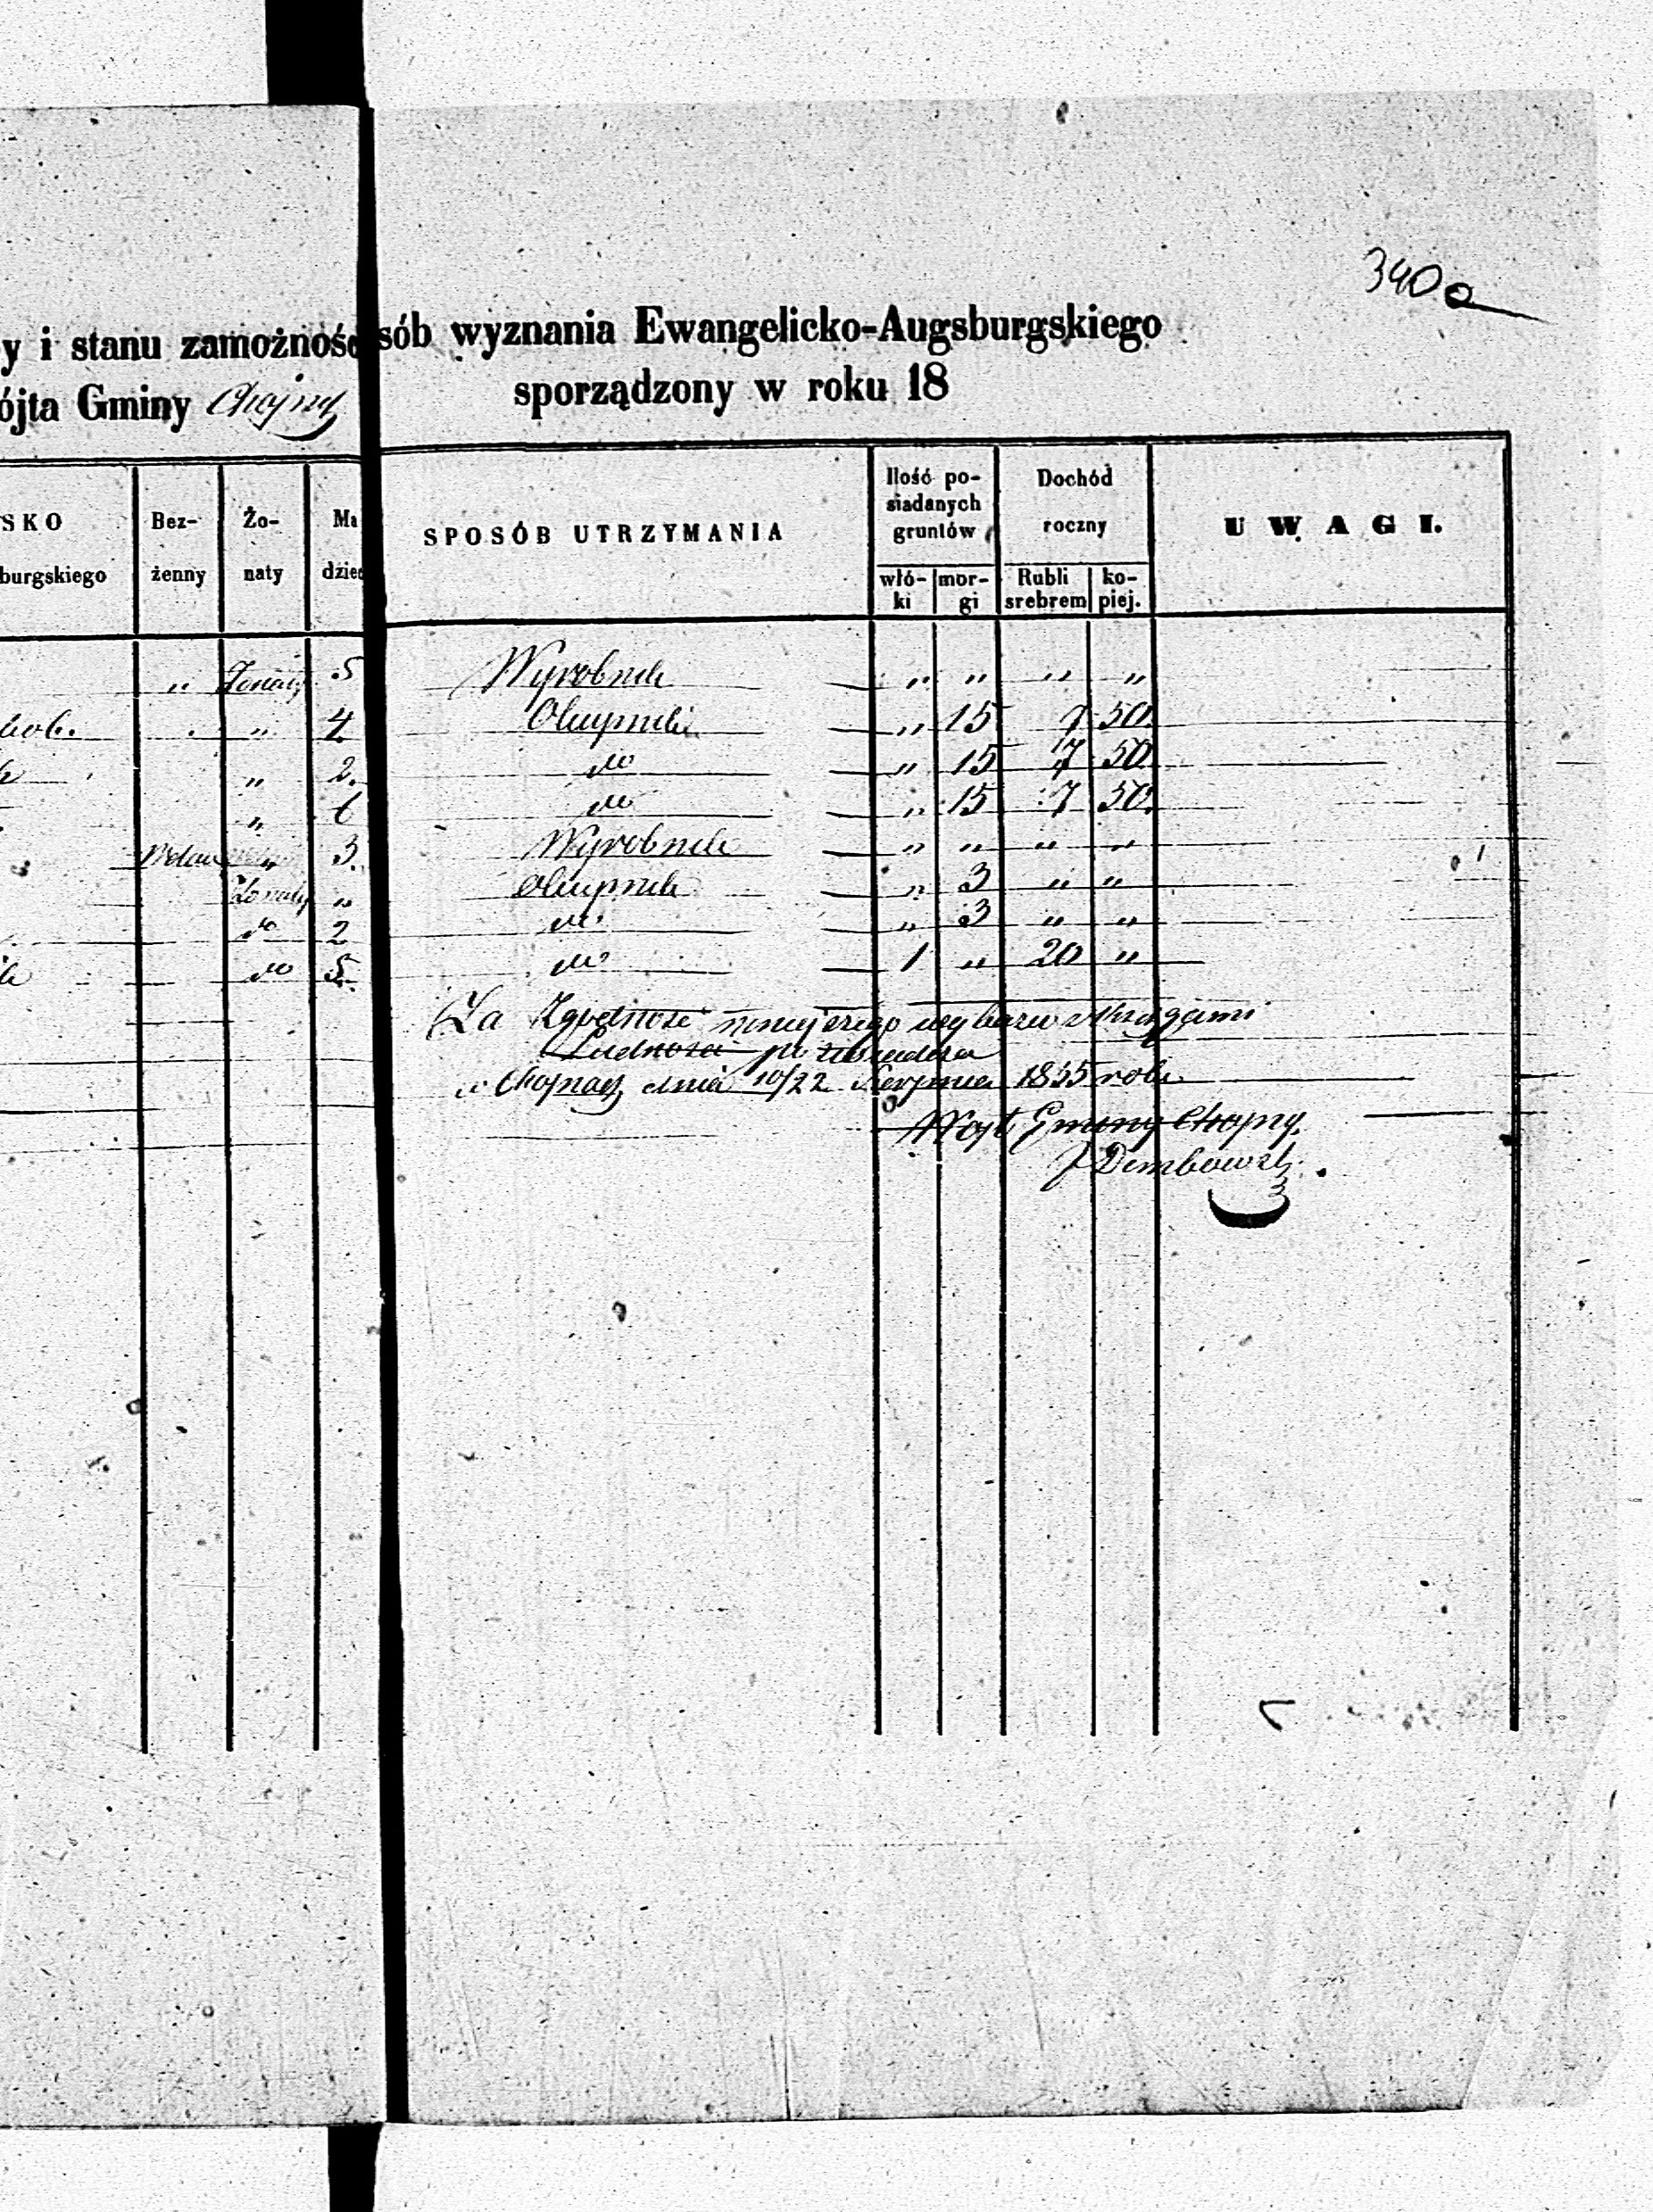 340a
y i stanu zamożnośc sób wyznania Ewangelicko-Augsburgskiego
ójta Gminy Chojny sporządzony w roku 18
SKO
burgskiego
Bez-
żenny
Żo-
naty
Ma
dziec
SPOSÓB UTRZYMANIA
Ilość po-
siadanych
gruntów
włó-
ki
mor-
gi
Dochód
roczny
Rubli
srebrem
ko-
piej.
UWAGI.
„ Żonaty 5 Wyrobnik „ „ „ „
„ 4 Okupnik „ 15 7 50.
„ 2. do „ 15 7 50
„ do „ 15 7 50.
Wdow „ 3. Wyrobnik „ „ „ „
Żonaty „ Okupnik „ 3 „ „
do 2 do „ 3 „ „
do 5. do 1 „ 20 „
Za Zgodność niniejszego wykazu z Księgami
Ludności poświadcza
w Chojnach dnia 10/22 Sierpnia 1855 roku
Wójt Gminy Chojny
J Dembowski